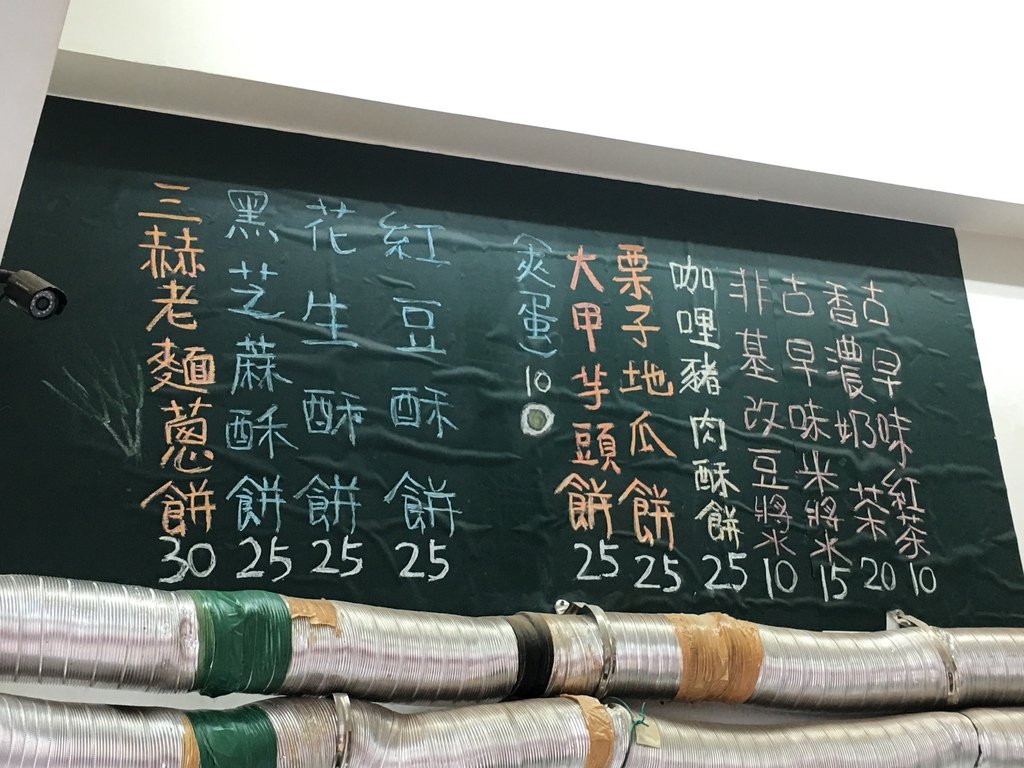 三赫老麵蔥餅30
黑芝蔴酥餅25
花生酥餅25
紅豆酥餅25
(夾蛋)10
大甲芋頭餅25
栗子地瓜餅25
咖哩豬肉酥餅25
非基改豆漿10
古早味米漿15
香濃奶茶20
古早味紅茶10